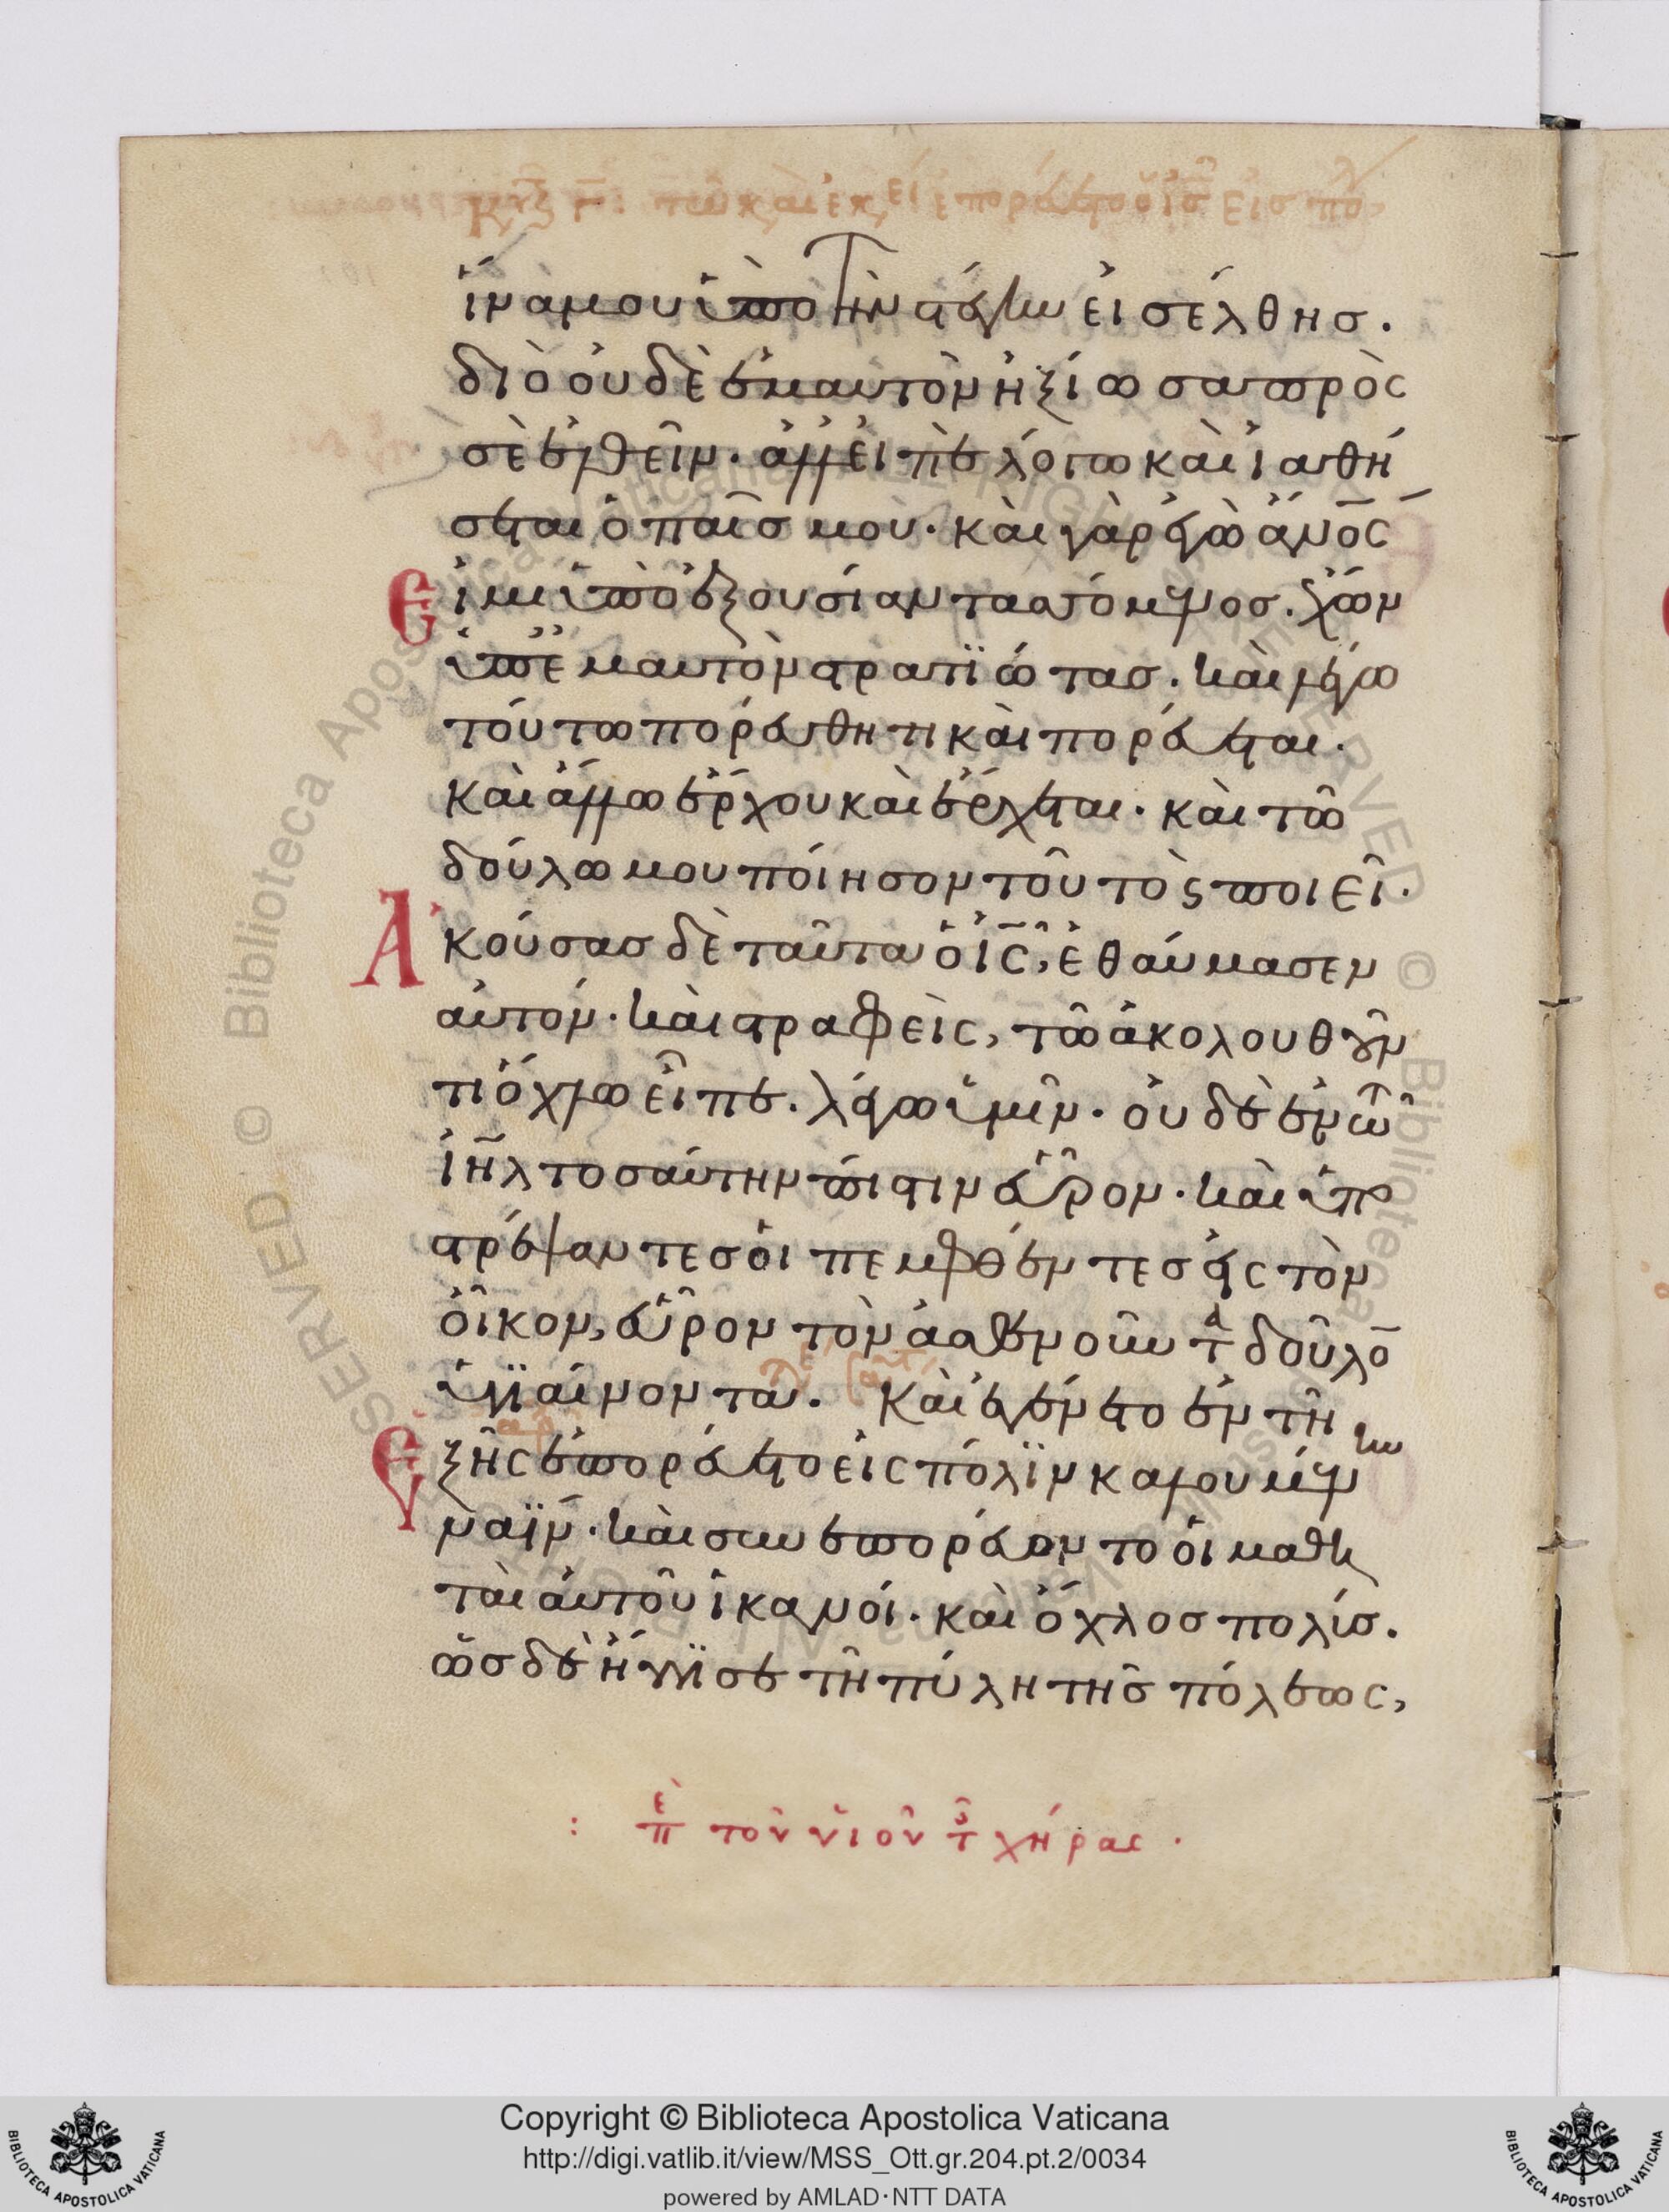 ἵνα μου ὑπὸ τὴν στέγην εἰσέλθησ.
διὸ οὐδὲ ἐμαυτὸν ἠξίωσα πρὸς
σὲ ἐλθεῖν. ἀλλ εἰπὲ λόγω καὶ ἰαθή
σεται ὁ παῖσ μου. καὶ γὰρ ἐγὼ ἄν̅ο̅ς
Εἰμι ὑπὸ ἐξουσίαν τασσόμενοσ. ἔχων
ὑπ ἐμαυτὸν στρατϊώτασ. καὶ λέγω
τούτω πορεύθητι καὶ πορεύεται.
καὶ ἄλλω ἔρχου καὶ ἔρχεται. καὶ τῶ
δούλω μου ποίησον τοῦτο ϗ ποιεῖ.
Ἀκούσασ δὲ ταῦτα ὁ ι̅ς̅, ἐθαύμασεν
αὐτόν. καὶ στραφεὶς, τῶ ἀκολουθοῦν
τι ὄχλω εἶπε. λέγω ὑμῖν. οὐδὲ ἐν τῶ
ι̅η̅λ τοσαύτην πίστιν εὗρον. καὶ ὑπο
στρέψαντεσ οἱ πεμφθέντεσ εἰς τὸν
οἶκον, εὗρον τὸν ἀσθενοῦντα δοῦλο̅
ὑγϊαίνοντα. Καὶ ἐγένετο ἐν τῆ
Ἑξῆς ἐπορεύετο εἰς πόλϊν καλουμένην
ναΐν. καὶ συνεπορεύοντο οἱ μαθη
ταὶ αὐτοῦ ἱκανοί. καὶ ὄχλοσ πολύσ.
ὡσ δὲ ἤγγϊσε τῆ πύλη τῆσ πόλεως,
: πε τοῦ υἱοῦ τ χήρας .
Copyright © Biblioteca Apostolica Vaticana
http://digi.vatlib.it/view/MSS_Ott.gr.204.pt.2/0034
powered by AMLAD·NTT DATA
BIBLIOTECA APOSTOLICA VATICANA
BIBLIOTECA APOSTOLICA VATICANA